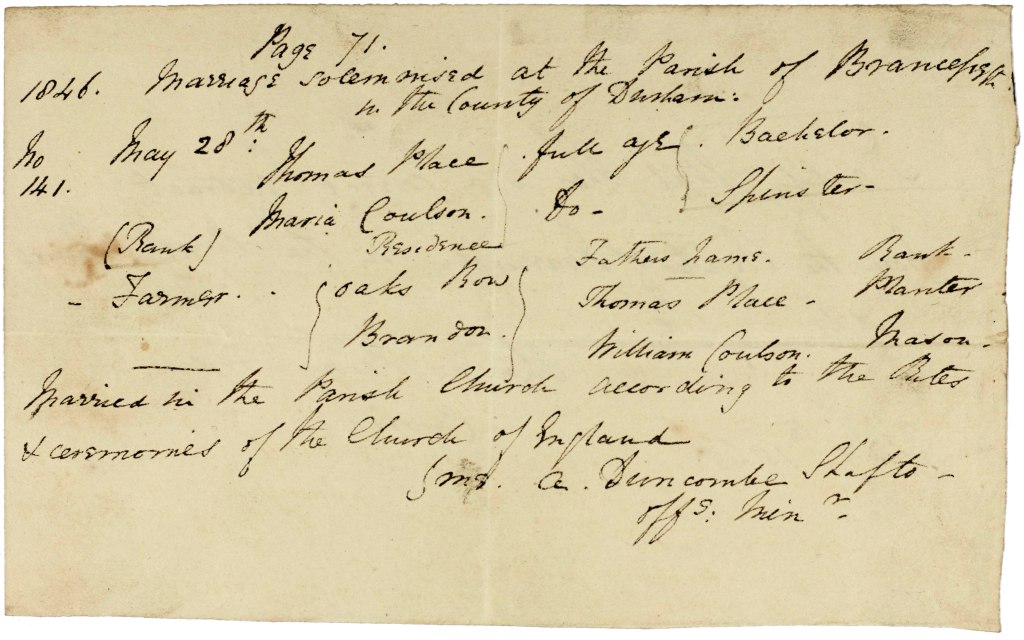 Page 71.
1846. Marriage solemnised at the Parish of Brancepeth
in the County of Durham:
No 141. May 28th: Thomas Place full age Bachelor.
Maria Coulson. Do - Spinster -
(Rank) Residence Fathers name. Rank -
- Farmer. . Oaks Row Thomas Place - Planter.
Brandon. William Coulson. Mason -
Married in the Parish Church according to the Rites
& ceremonies of the Church of England
A. Duncombe Shafto -
offg: Minr -